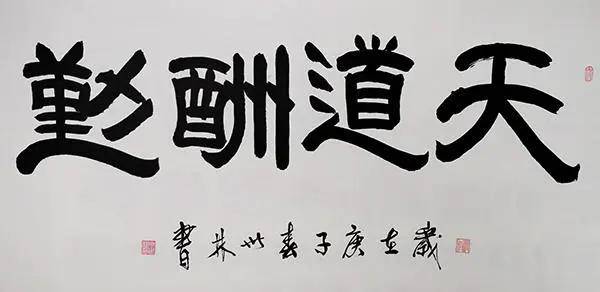 天道酬勤
歲在庚子春世林書